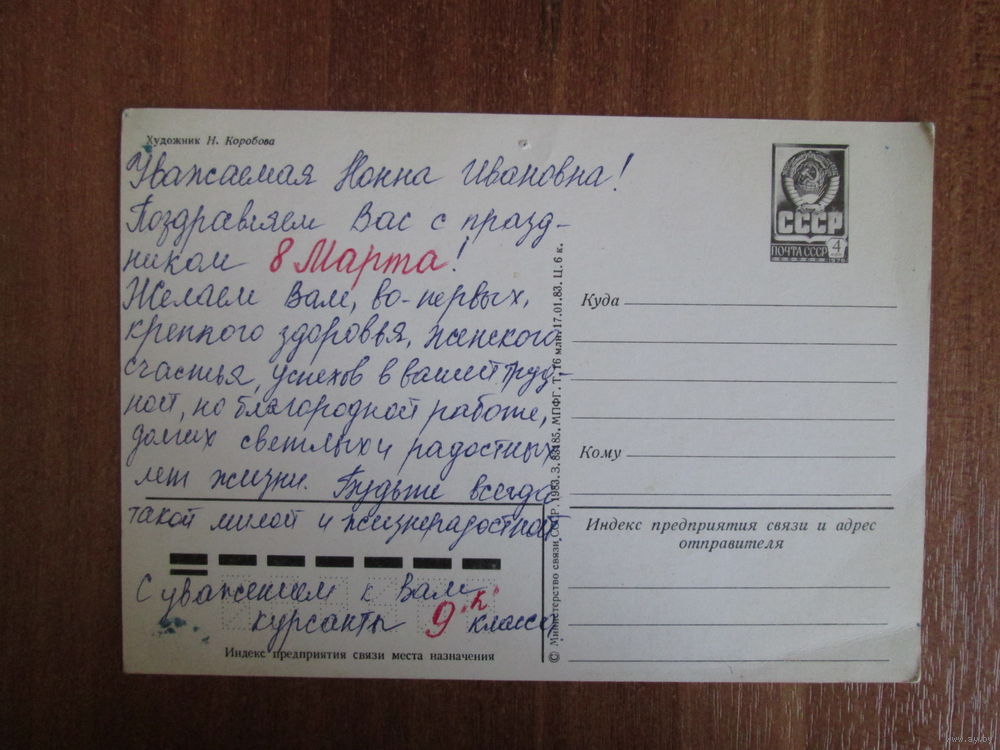 Художник Н. Коробова
Уважаемая Нонна Ивановна!
Поздравляем Вас с празд-
ником 8 Марта!
Желаем Вам, во-первых,
крепкого здоровья, женского
счастья, успехов в вашей труд-
ной, но благородной работе,
долгих светлых и радостных
лет жизни. Будьте всегда
такой милой и жизнерадостной
С уважением к Вам
курсанты 9 "К" класса
Индекс предприятия связи места назначения
© Министерство связи СССР. 1983. З. 83185. МПФГ. Т. 16 млн. 17.01.83. Ц. 6 к.
СССР
ПОЧТА СССР 4
Куда
Кому
Индекс предприятия связи и адрес
отправителя
www.ay.by